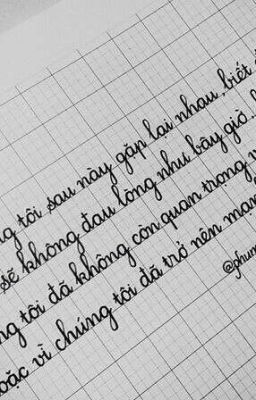 tôi sau này gặp lại nhau biết
sẽ không đau lòng như bây giờ..
tôi đã không còn quan trọng
vì chúng tôi đã trở nên mạn
@phum